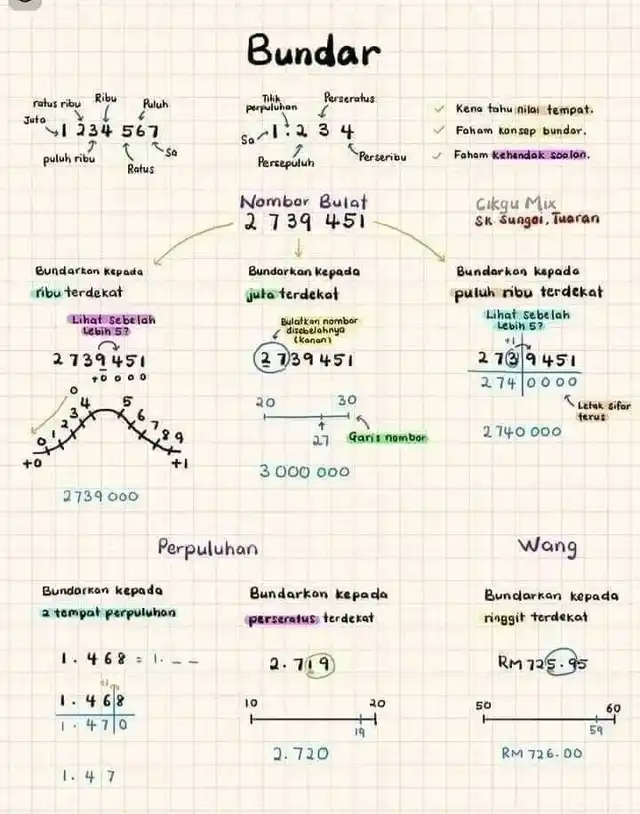 Bundar
ratus ribu
Ribu
Puluh
Juta
1 234 567
puluh ribu
Ratus
Sa
Titik
perpuluhan
Perseratus
Sa
1 . 2 3 4
Persepuluh
Perseribu
✓ Kena tahu nilai tempat.
✓ Faham konsep bundar.
✓ Faham kehendak soalan.
Nombor Bulat
2 739 451
Cikgu Mix
SK Sungoi, Tuaran
Bundarkan kepada
ribu terdekat
Lihat Sebelah
Lebih 5?
2 739 451
+0 0 0 0
0
0 1 2 3 4 5 6 7 8 9
+0
+1
2739 000
Bundarkan kepada
juta terdekat
Bulatkan nombor
disebelahnya
(kanan)
2 739 451
20
30
27
Garis nombor
3 000 000
Bundarkan kepada
puluh ribu terdekat
Lihat Sebelah
Lebih 5?
+1
2 73 9 451
2 74 0 0 0 0
Letak sifar
terus
2740 000
Perpuluhan
Wang
Bundarkan kepada
2 tempat perpuluhan
1 . 4 6 8 = 1 . _ _
1 . 4 6 8
1 . 4 7 0
1 . 4 7
Bundarkan kepada
perseratus terdekat
2 . 7 1 9
10
20
19
2.720
Bundarkan kepada
ringgit terdekat
RM 725.95
50
60
59
RM 726.00